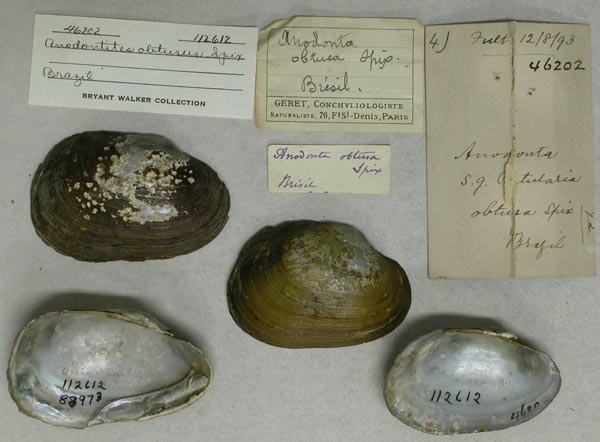 46202 112612
Anodontites obtusus Spix
Brazil
BRYANT WALKER COLLECTION
Anodonta
obtusa Spix.
Brésil.
GERET, CONCHYLIOLOGISTE
NATURALISTE, 76, Fg St-Denis, PARIS
Anodonta obtusa
Spix
Brésil
4) Fult 12/8/93
46202
Anodonta
s.g.
obtusa Spix
Brazil
112612
88973
112612
4620